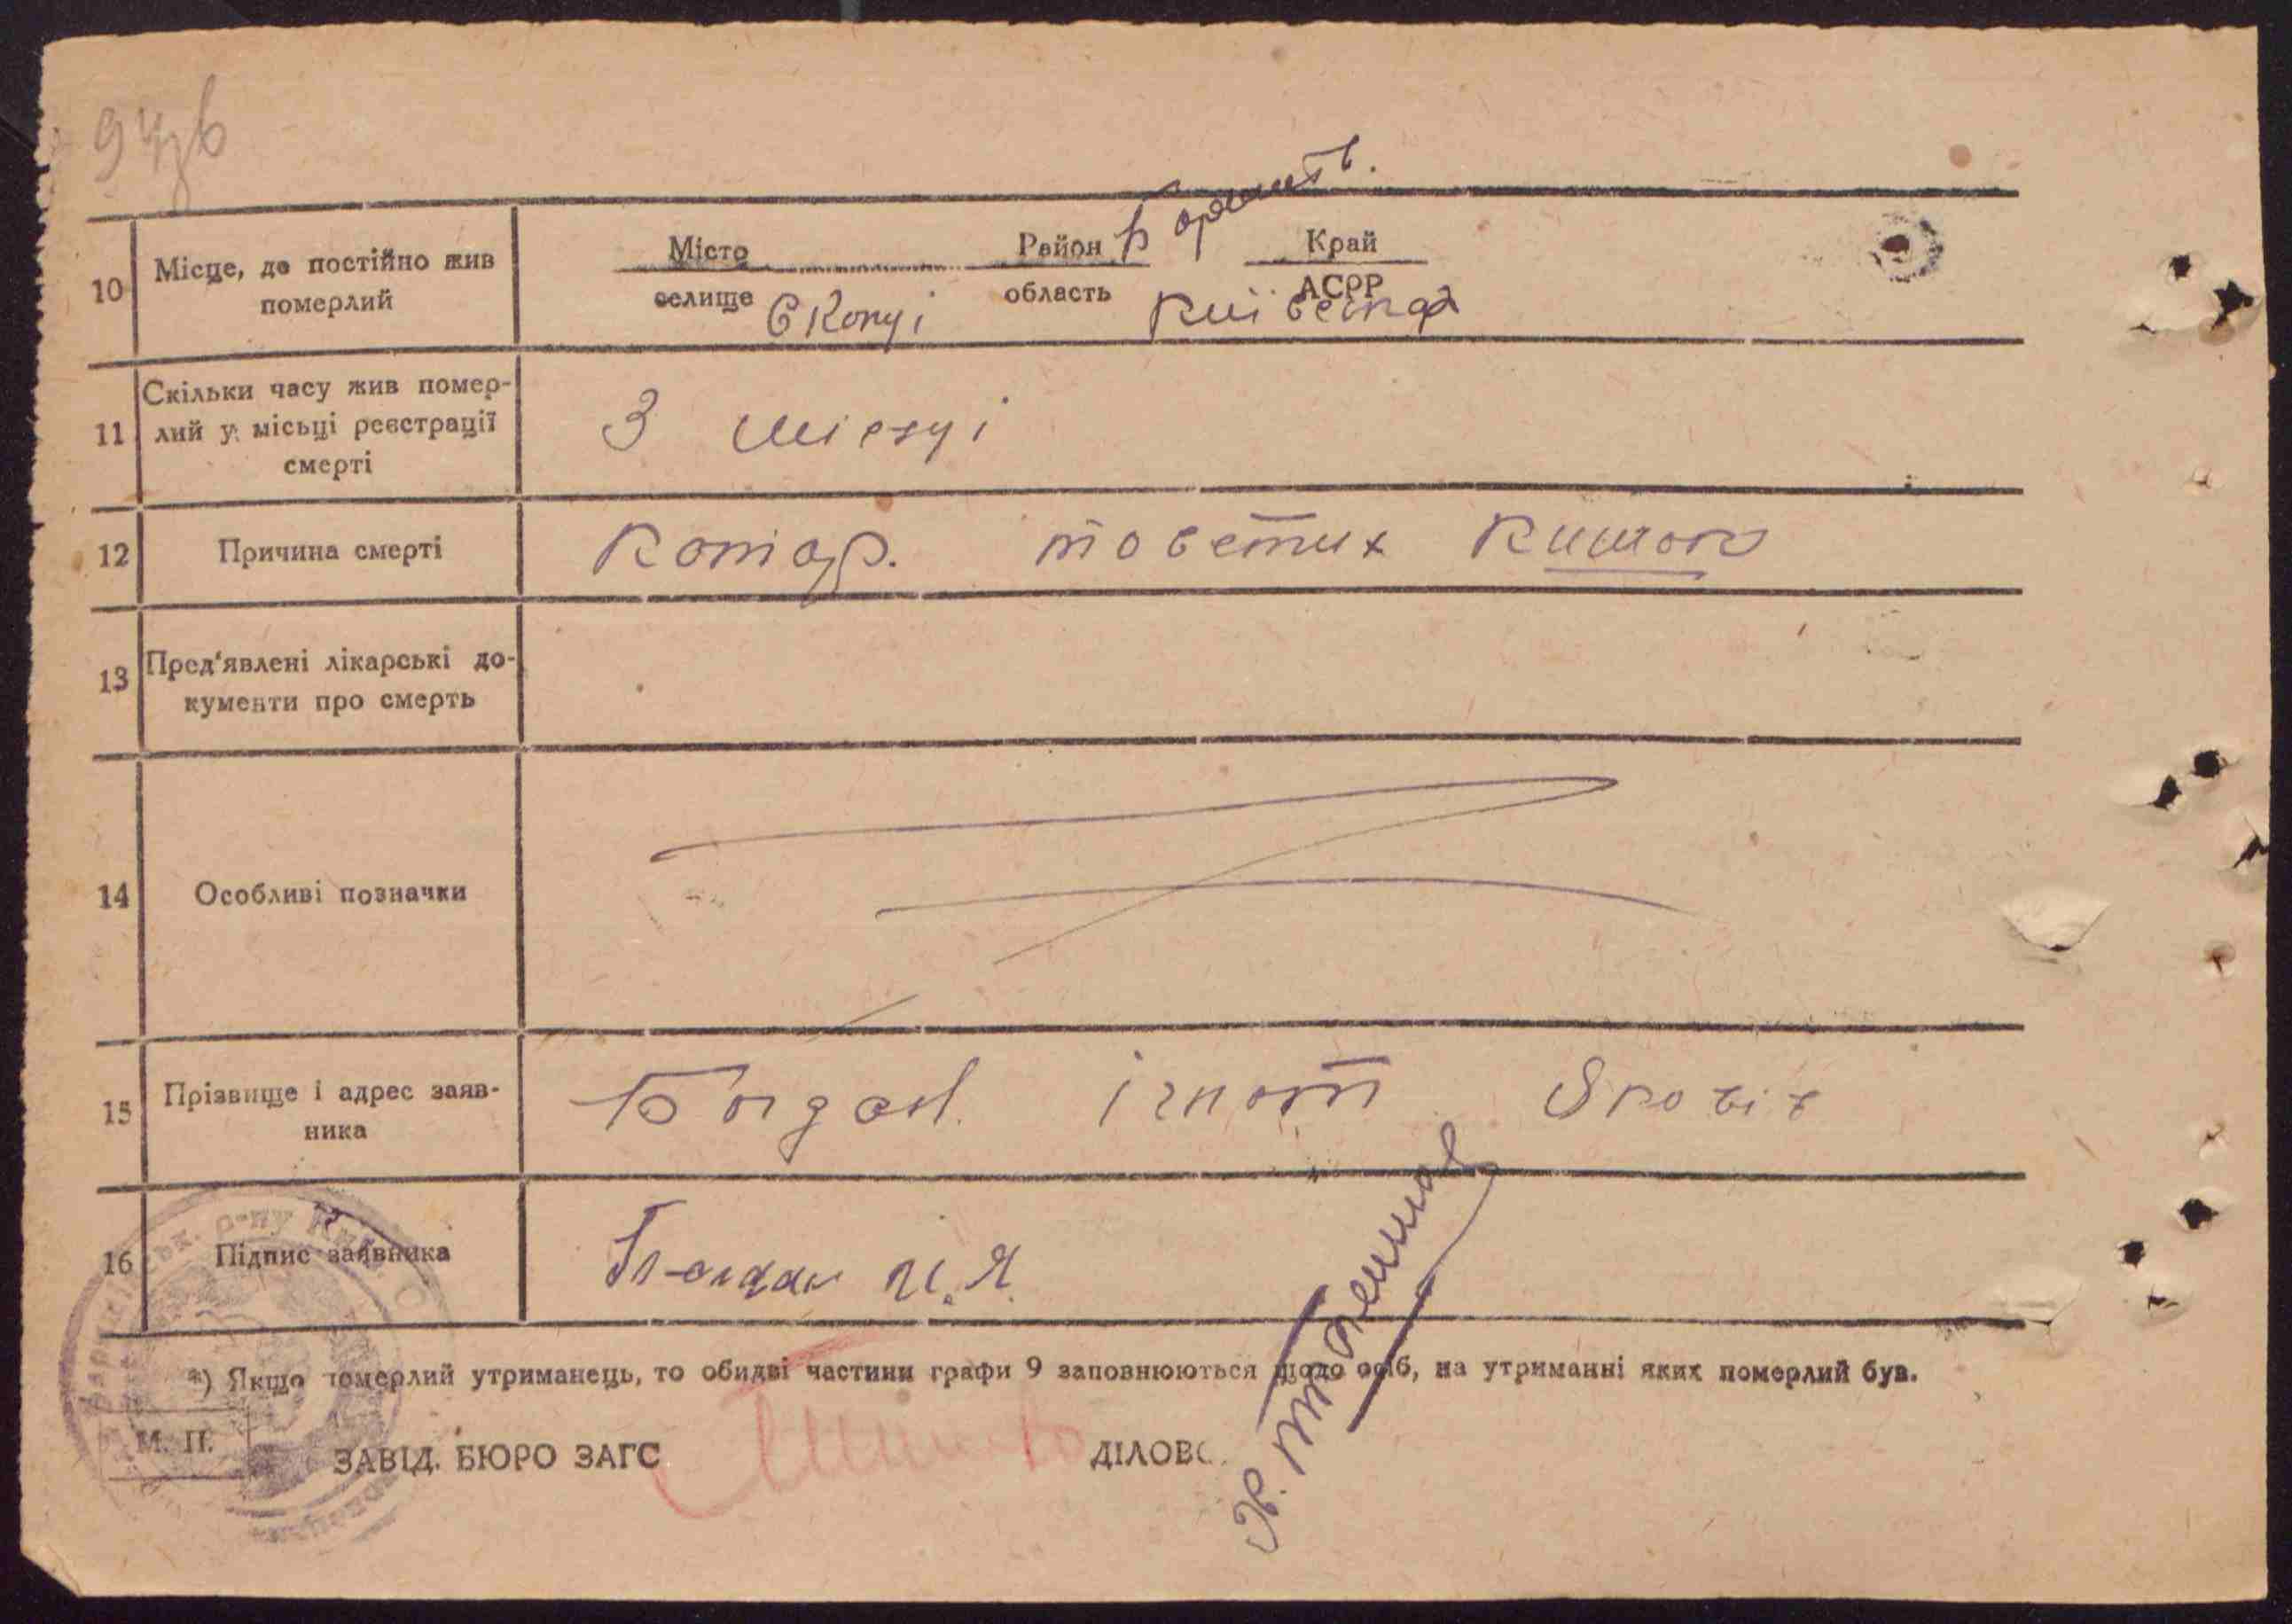 10 Місце, де постійно жив
померлий
Місто Район Край
селище область АСРР
Київська
11 Скільки часу жив помер-
лий у місьці реєстрації
смерті
3 місяці
12 Причина смерті
Катар. товстих кишок
13 Пред'явлені лікарські до-
кументи про смерть
14 Особливі позначки
15 Прізвище і адрес заяв-
ника
Богдан Ігнат Яковів
16 Підпис заявника
Богдан И. Я.
*) Якщо померлий утриманець, то обидві частини графи 9 заповнюються щодо осіб, на утриманні яких померлий був.
М. П.
ЗАВІД. БЮРО ЗАГС ДІЛОВ